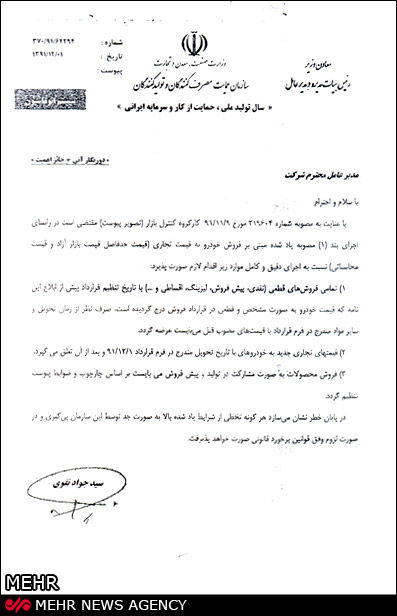 شماره : ۳۷۰/۹۱/۶۴۲۹۴
تاریخ : ۱۳۹۱/۱۲/۰۱
پیوست :
وزارت صنعت، معدن و تجارت
سازمان حمایت مصرف کنندگان و تولیدکنندگان
معاون وزیر
رئیس هیات مدیره و مدیرعامل
« سال تولید ملی ، حمایت از کار و سرمایه ایرانی »
« دورنگار آنی + حائز اهمیت »
مدیر عامل محترم شرکت
با سلام و احترام
با عنایت به مصوبه شماره ۲۱۹۶۰۴ مورخ ۹۱/۱۱/۹ کارگروه کنترل بازار (تصویر پیوست) مقتضی است در راستای
اجرای بند (۱) مصوبه یاد شده مبنی بر فروش خودرو به قیمت تجاری (قیمت حدفاصل قیمت بازار آزاد و قیمت
محاسباتی) نسبت به اجرای دقیق و کامل موارد زیر اقدام لازم صورت پذیرد:
۱) تمامی فروش‌های قطعی (نقدی، پیش فروش، لیزینگ، اقساطی و ...) با تاریخ تنظیم قرارداد پیش از ابلاغ این
نامه که قیمت خودرو به صورت مشخص و قطعی در قرارداد فروش درج گردیده است، صرف نظر از زمان تحویل و
سایر مواد مندرج در فرم قرارداد با قیمت‌های مصوب قبل می‌بایست عرضه گردد.
۲) قیمتهای تجاری جدید به خودروهای با تاریخ تحویل مندرج در فرم قرارداد ۹۱/۱۲/۱ و بعد از آن تعلق می گیرد.
۳) فروش محصولات به صورت مشارکت در تولید ، پیش فروش می بایست بر اساس چارچوب و ضوابط پیوست
تنظیم گردد.
در پایان خاطر نشان می‌سازد هر گونه تخطی از شرایط یاد شده بالا به صورت جد توسط این سازمان پی‌گیری و در
صورت لزوم وفق قوانین برخورد قانونی صورت خواهد پذیرفت.
سید جواد تقوی
MEHR
MEHR NEWS AGENCY